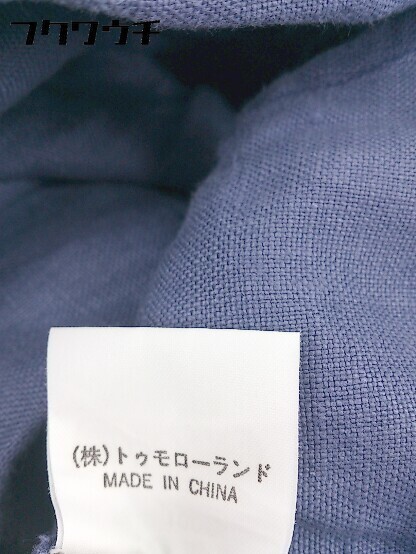 フクワウチ
(株)トゥモローランド
MADE IN CHINA